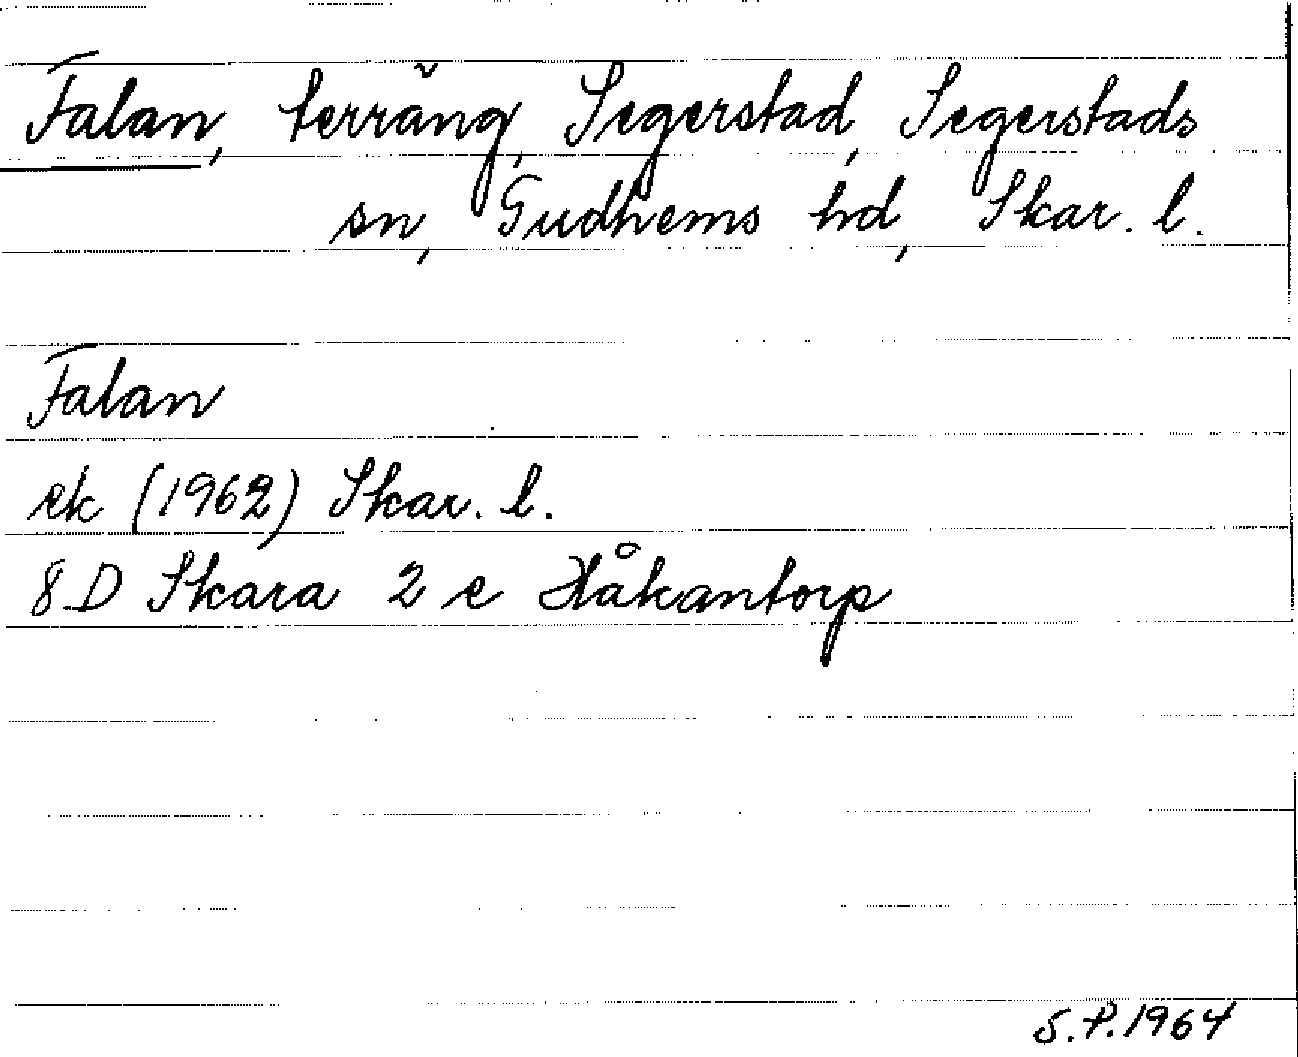 Falan, terräng, Segerstad, Segerstads
sn, Gudhems hd, Skar. l.
Falan
ek (1962) Skar. l.
8 D Skara 2 e Håkantorp
S.P. 1964